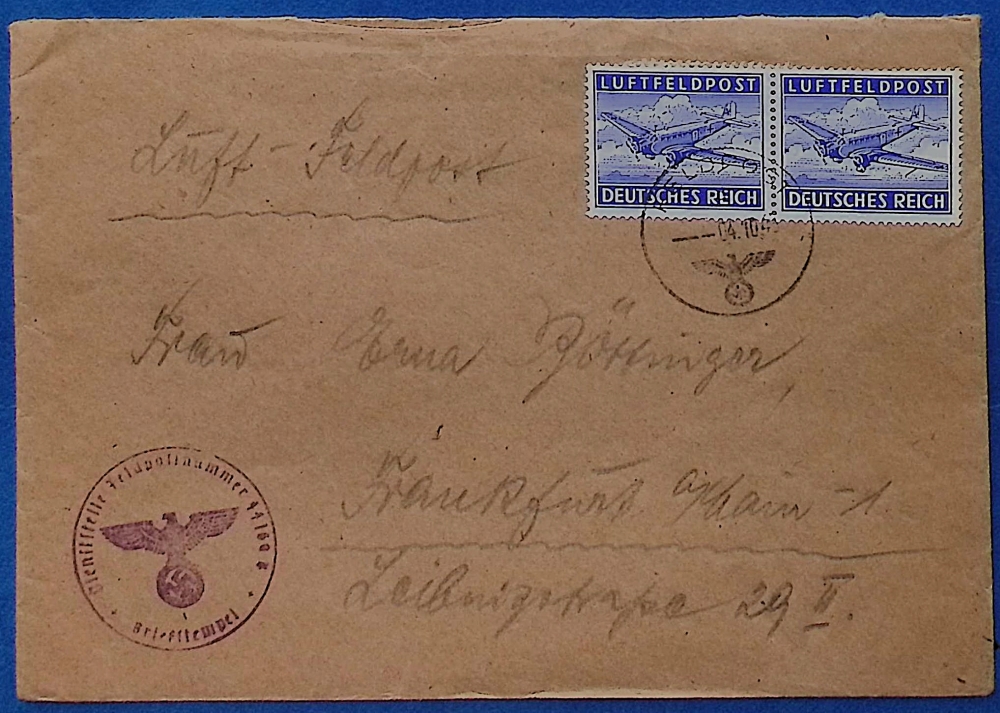 LUFTFELDPOST LUFTFELDPOST
DEUTSCHES REICH DEUTSCHES REICH
FELDPOST
04.10.43
Luft-Feldpost
Frau Erna Böttinger,
Frankfurt a/Main-1
Leibnizstraße 29 II.
Dienststelle Feldpostnummer
Briefstempel